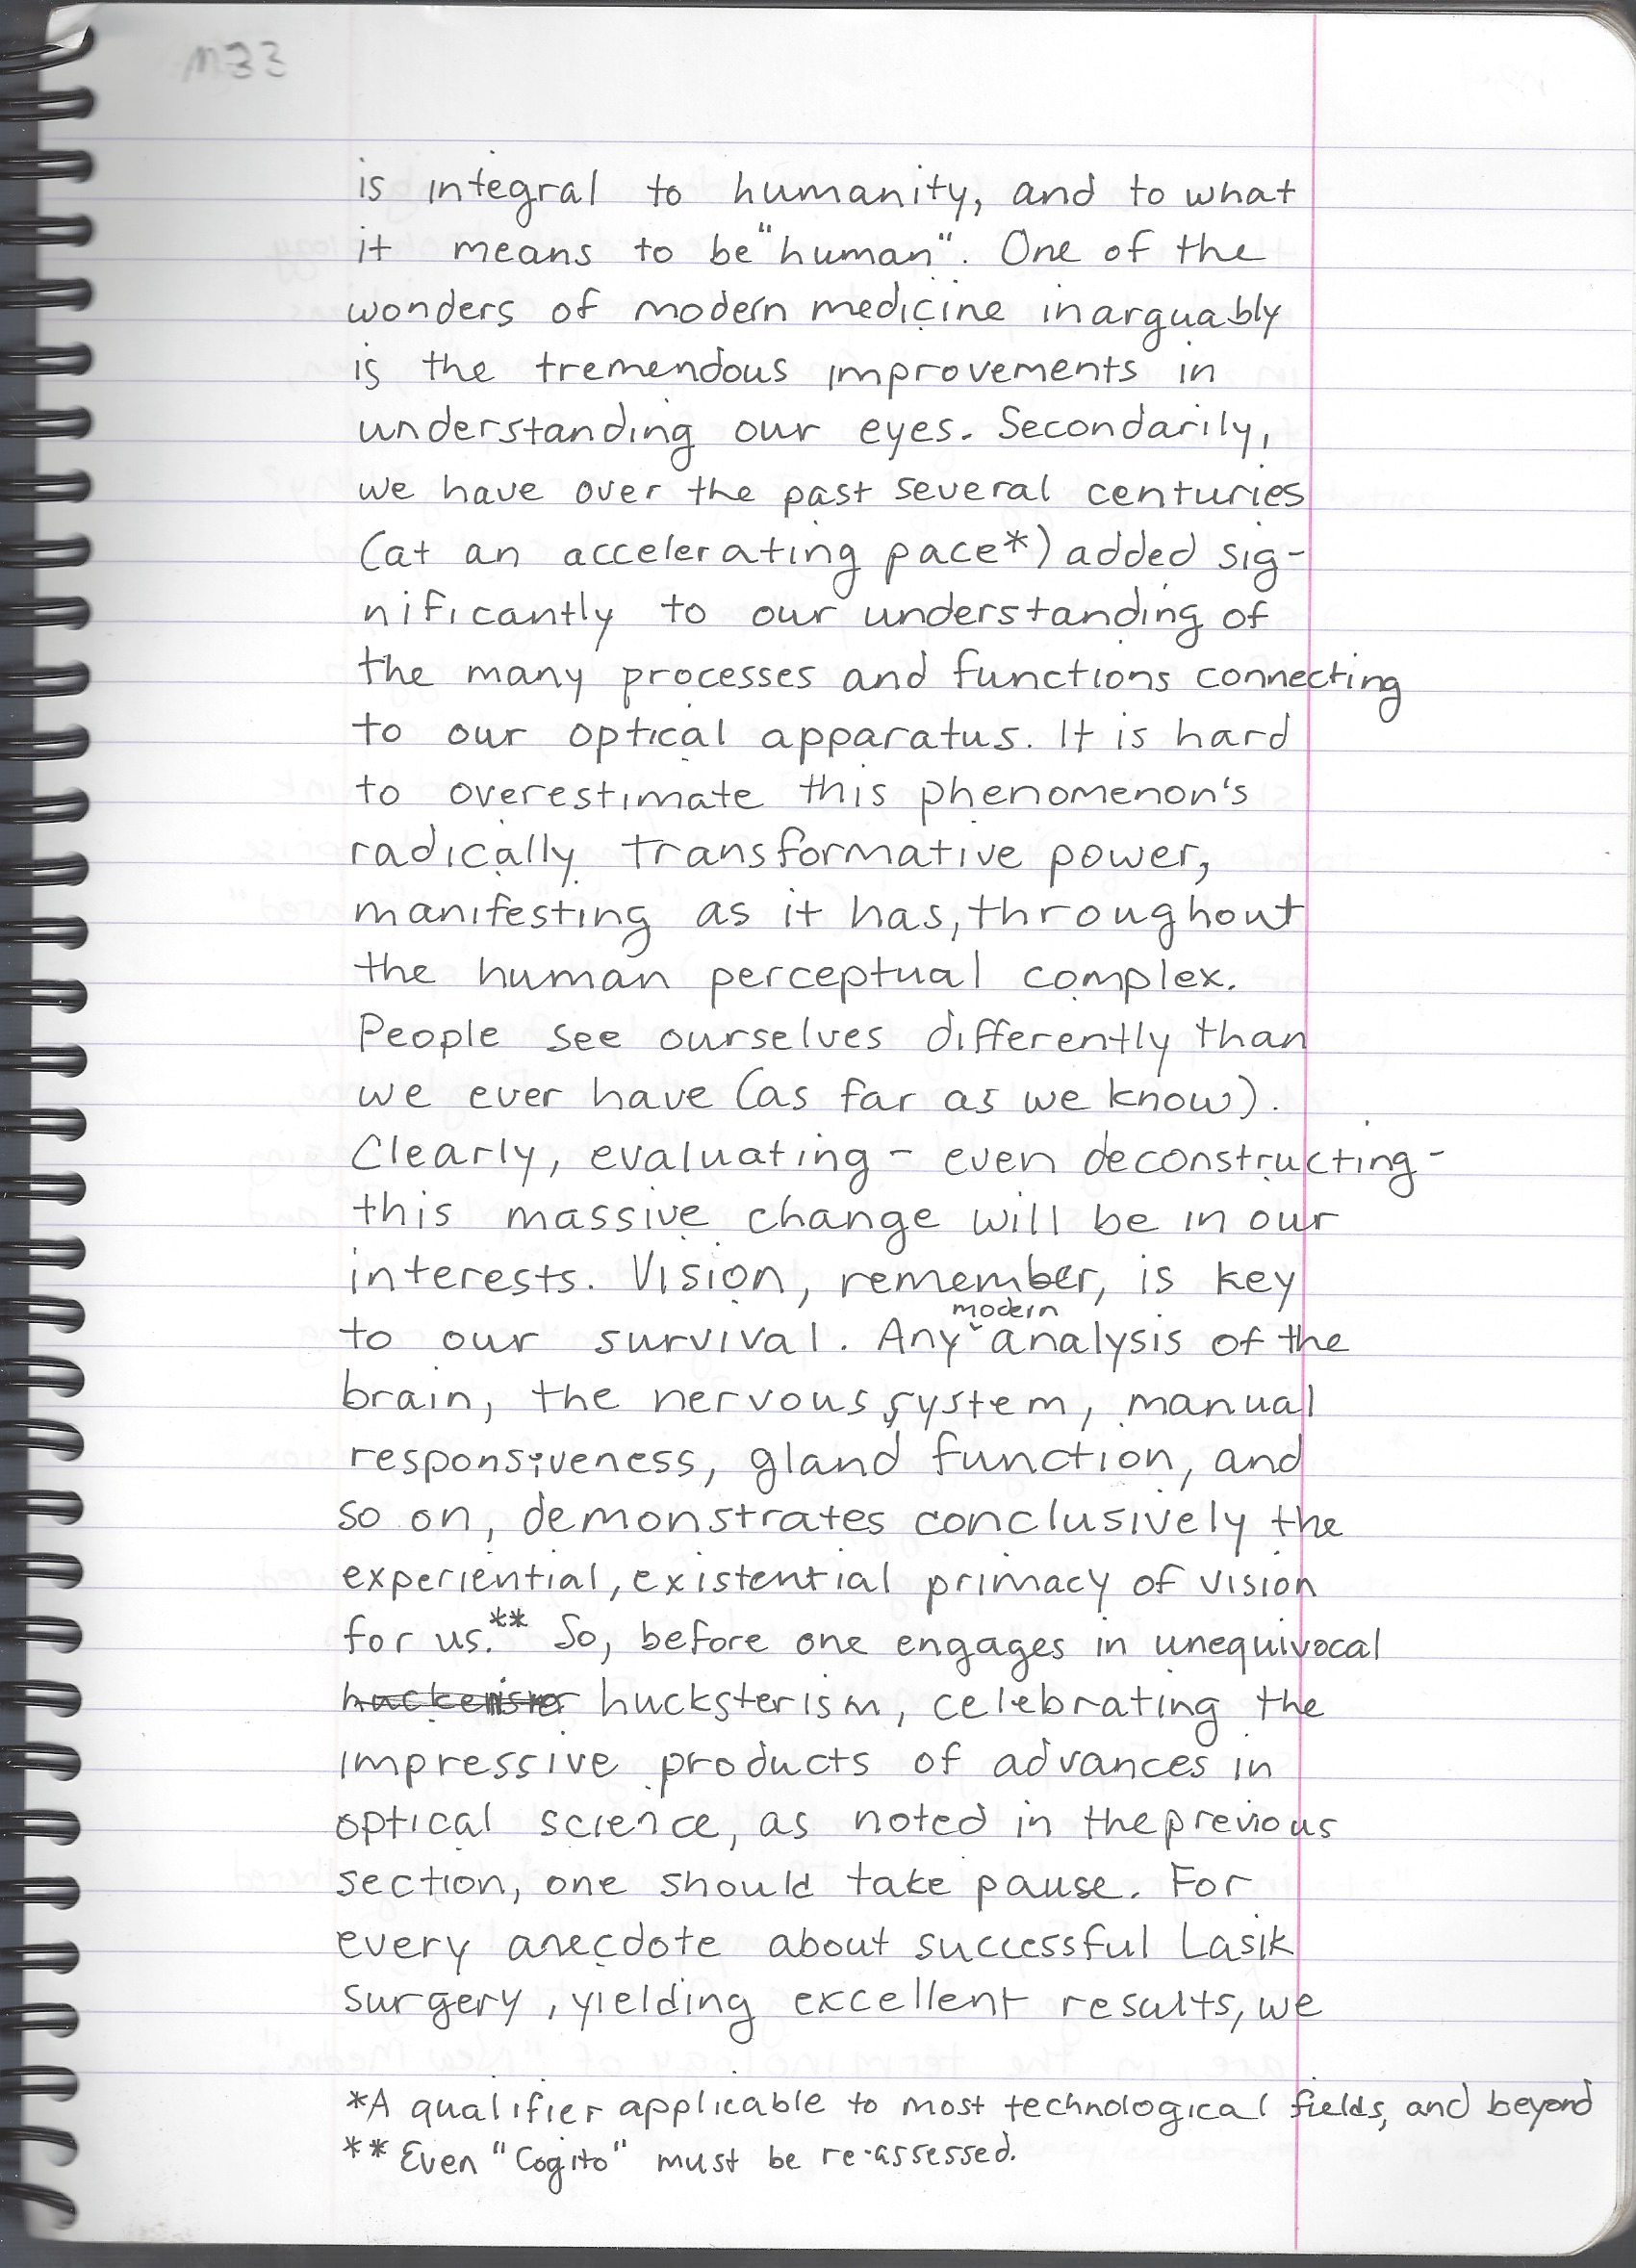 M33
is integral to humanity, and to what
it means to be "human". One of the
wonders of modern medicine inarguably
is the tremendous improvements in
understanding our eyes. Secondarily,
we have over the past several centuries
(at an accelerating pace*) added sig-
nificantly to our understanding of
the many processes and functions connecting
to our optical apparatus. It is hard
to overestimate this phenomenon's
radically transformative power,
manifesting as it has, throughout
the human perceptual complex.
People see ourselves differently than
we ever have (as far as we know).
Clearly, evaluating - even deconstructing -
this massive change will be in our
interests. Vision, remember, is key
to our survival. Any modern analysis of the
brain, the nervous system, manual
responsiveness, gland function, and
so on, demonstrates conclusively the
experiential, existential primacy of vision
for us.** So, before one engages in unequivocal
hucksterism, celebrating the
impressive products of advances in
optical science, as noted in the previous
section, one should take pause. For
every anecdote about successful Lasik
surgery, yielding excellent results, we
*A qualifier applicable to most technological fields, and beyond
** Even "Cogito" must be re-assessed.